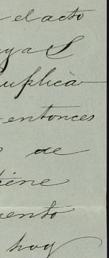 el acto
y a S
suplica
entonces
de
tiene
iento
hoy